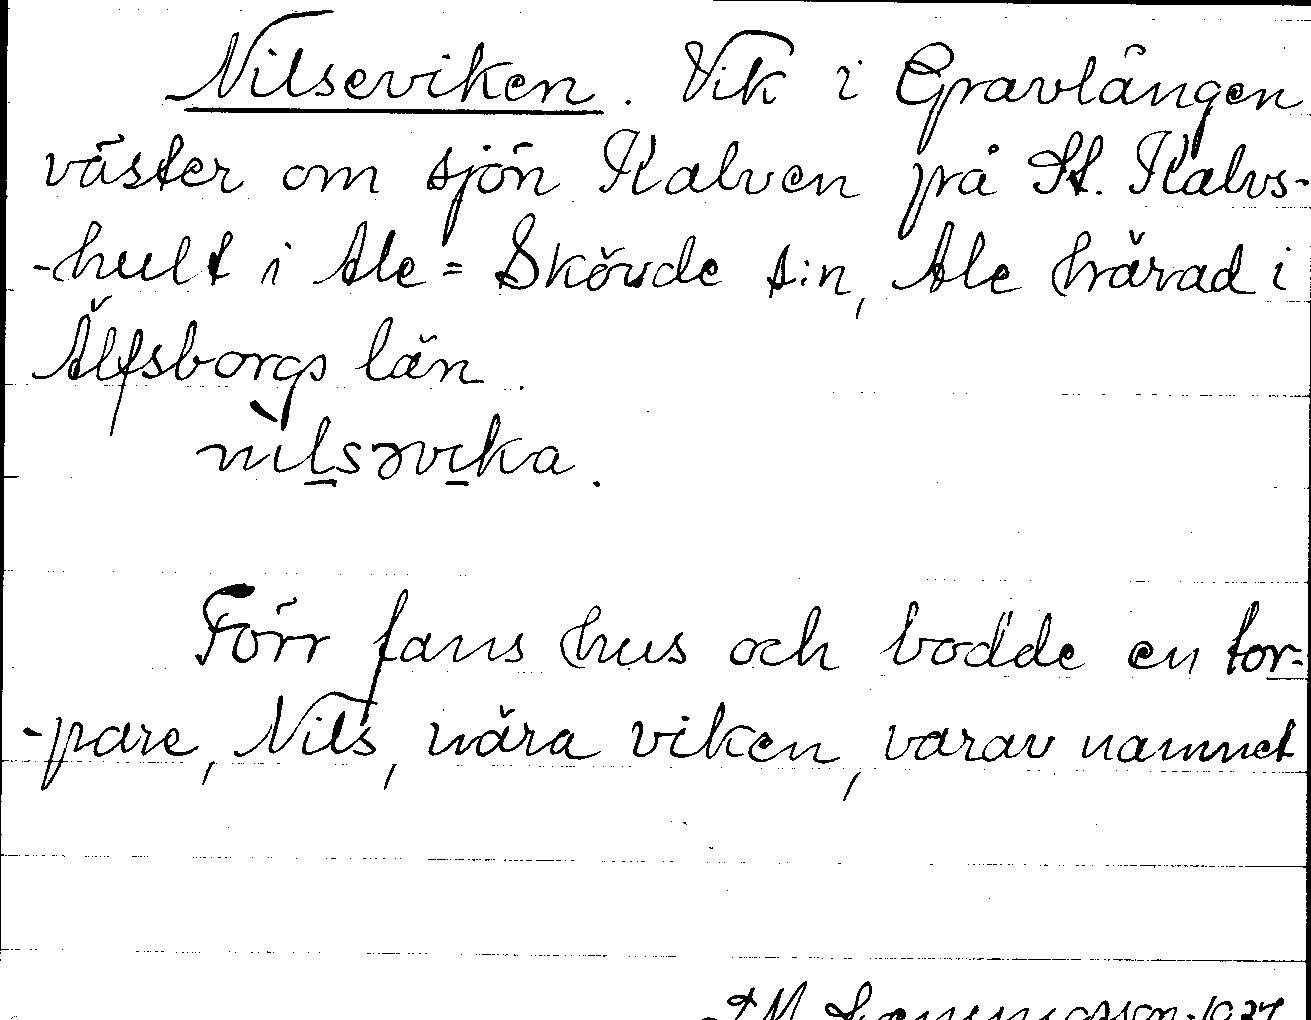 Nilseviken. Vik i Gravlången
väster om sjön Kalven på St. Kalvs-
-hult i Ale=Skövde s:n, Ale härad i
Älfsborgs län.
nìlsəvika.
Förr fans hus och bodde en tor-
-pare, Nils, nära viken, varav namnet